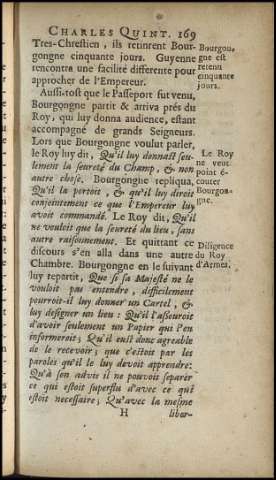 CHARLES QUINT. 169
Tres-Chrestien, ils retinrent Bour-
gongne cinquante jours. Guyenne
rencontra une facilité differente pour
approcher de l'Empereur.
Bourgou.
gne est
retenu
cinquante
jours.
Aussi-tost que le Passeport fut venu,
Bourgongne partit & arriva prés du
Roy, qui luy donna audience, estant
accompagné de grands Seigneurs.
Lors que Bourgongne voulut parler,
le Roy luy dit, Qu'il luy donnast seu-
lement la seureté du Champ, & non
autre chose. Bourgongne repliqua,
Qu'il la portoit, & qu'il luy diroit
conjointement ce que l'Empereur luy
avoit commandé. Le Roy dit, Qu'il
ne vouloit que la seureté du lieu, sans
autre raisonnement. Et quittant ce
discours s'en alla dans une autre
Chambre. Bourgongne en le suivant
luy repartit, Que si sa Majesté ne le
vouloit pas entendre, difficilement
pourroit-il luy donner un Cartel, &
luy designer un lieu: Qu'il l'asseuroit
d'avoir seulement un Papier qui l'en
informeroit; Qu'il eust donc agreable
de le recevoir; que c'estoit par les
paroles qu'il le luy devoit apprendre:
Qu'à son advis il ne pouvoit separer
ce qui estoit superflu d'avec ce qui
estoit necessaire; Qu'avec la mesme
Le Roy
ne veut
point é-
couter
Bourgon-
gne.
Diligence
du Roy
d'Armes.
H liber-